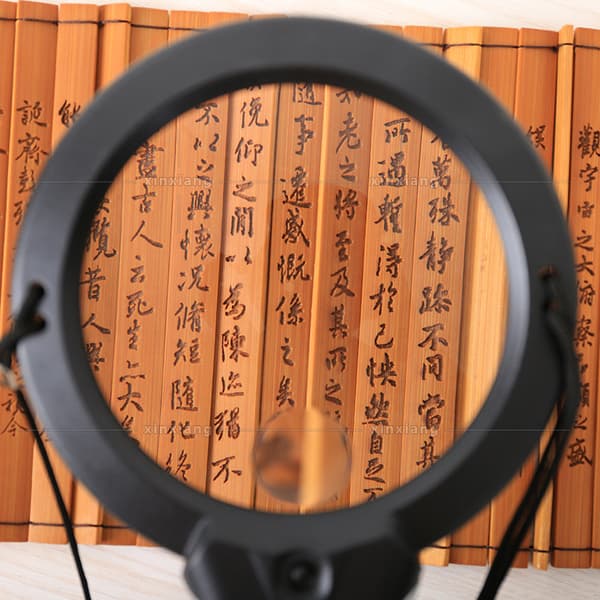 觀宇宙之大府察品類之盛
萬殊静躁不同當其
所遇蹔得於己怏然自足不
老之將至及其所之
隨事遷感慨係之矣
俛仰之閒以為陳迹猶不
不以之興懷况脩短隨化終
盡古人云死生亦大
覽昔人興
能
誕齊彭殤
xinxiang
xinxiang
xinxiang
xinxiang